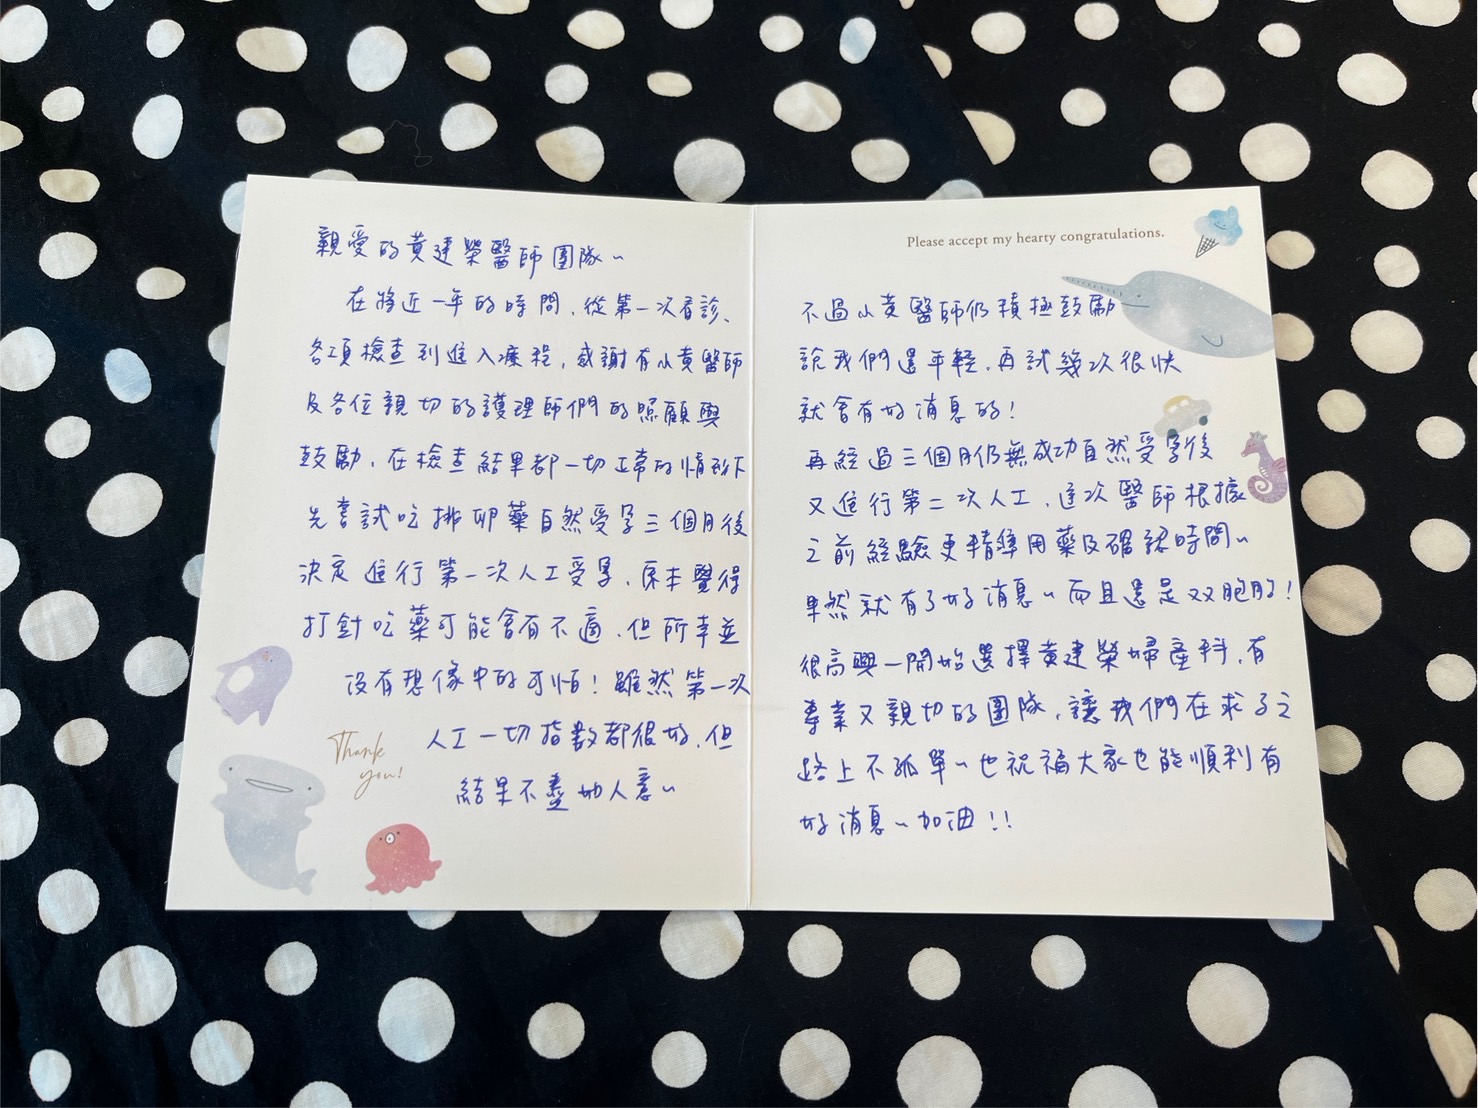 親愛的黃建榮醫師團隊~
在將近一年的時間、從第一次看診、
各項檢查到進入療程，感謝有小黃醫師
及各位親切的護理師們的照顧與
鼓勵，在檢查結果都一切正常的情形下
先嘗試吃排卵藥自然受孕三個月後
決定進行第一次人工受孕，原本覺得
打針吃藥可能會有不適，但所幸並
沒有想像中的可怕！雖然第一次
人工一切指數都很好，但
結果不盡如人意~
Thank
you!
Please accept my hearty congratulations.
不過小黃醫師仍積極鼓勵
說我們還年輕，再試幾次很快
就會有好消息的！
再經過三個月仍無成功自然受孕後
又進行第二次人工，這次醫師根據
之前經驗更精準用藥及確認時間~
果然就有了好消息~而且還是双胞胎！
很高興一開始選擇黃建榮婦產科，有
專業又親切的團隊，讓我們在求子之
路上不孤單~也祝福大家也能順利有
好消息~加油！！